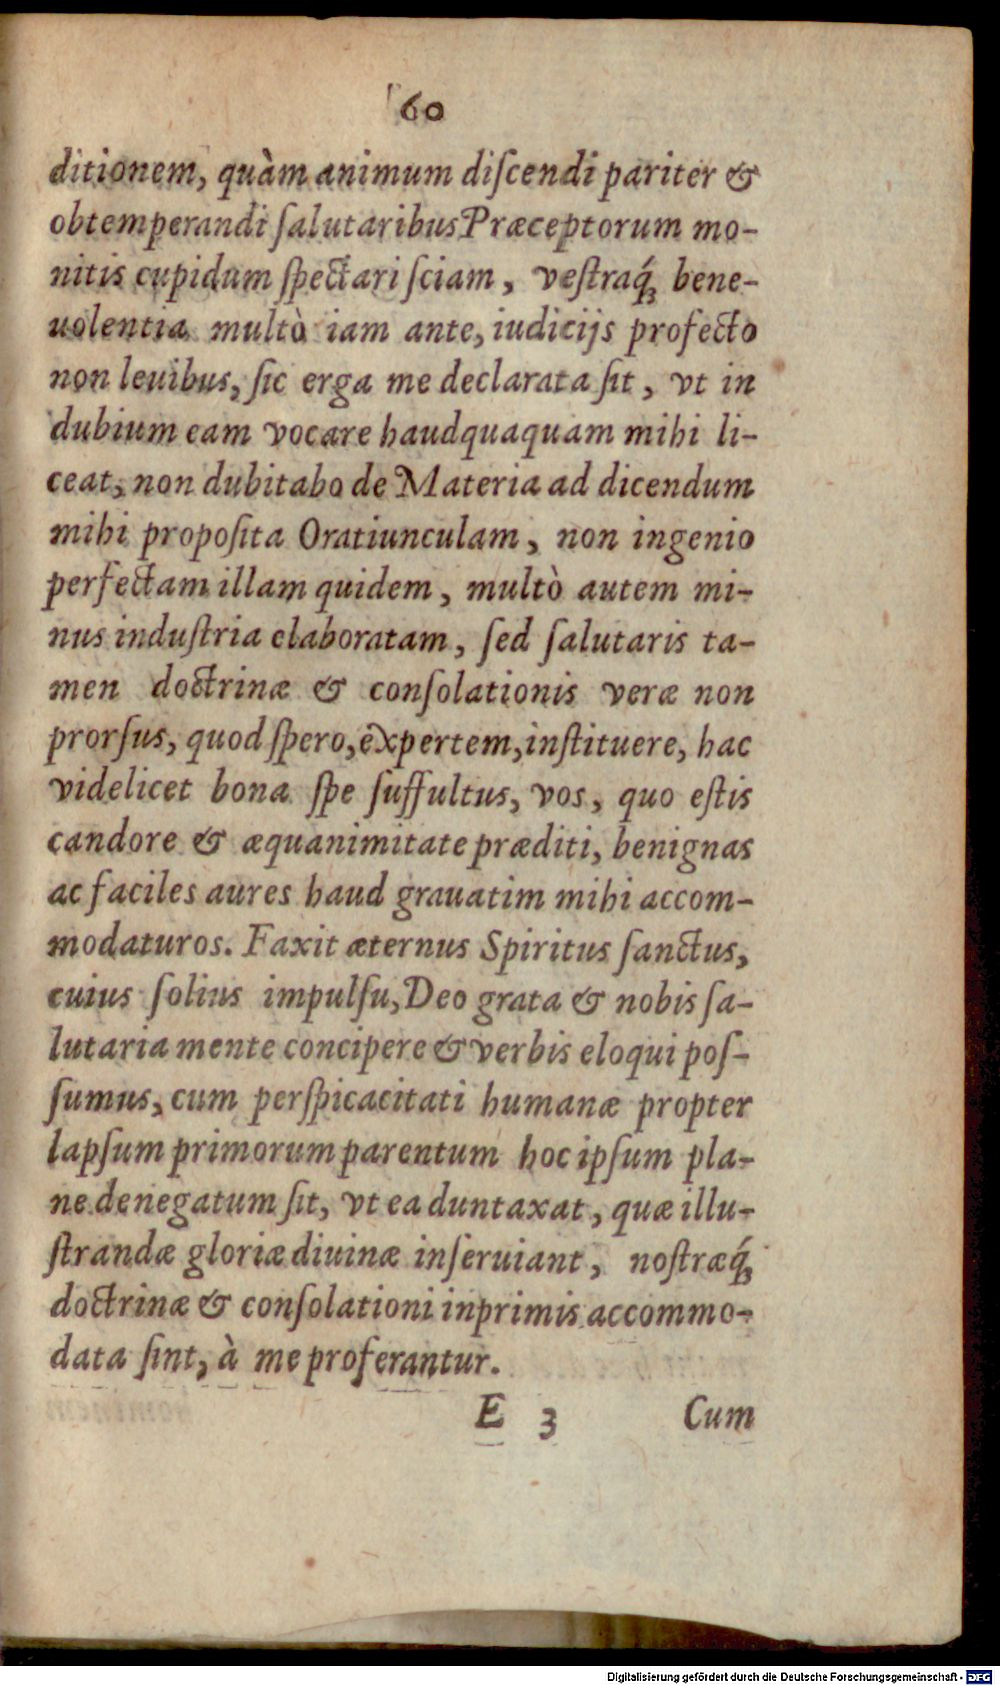 60
ditionem, quàm animum diſcendi pariter &
obtemperandi ſalutaribus Præceptorum mo-
nitis cupidum ſpectari ſciam, veſtraq́; bene-
uolentia multò iam ante, iudicijs profecto
non leuibus, ſic erga me declarata ſit, vt in
dubium eam vocare haudquaquam mihi li-
ceat, non dubitabo de Materia ad dicendum
mihi propoſita Oratiunculam, non ingenio
perfectam illam quidem, multò autem mi-
nus induſtria elaboratam, ſed ſalutaris ta-
men doctrinæ & conſolationis veræ non
prorſus, quod ſpero, expertem, inſtituere, hac
videlicet bona ſpe ſuffultus, vos, quo eſtis
candore & æquanimitate præditi, benignas
ac faciles aures haud grauatim mihi accom-
modaturos. Faxit æternus Spiritus ſanctus,
cuius ſolius impulſu, Deo grata & nobis ſa-
lutaria mente concipere & verbis eloqui poſ-
ſumus, cum perſpicacitati humanæ propter
lapſum primorum parentum hoc ipſum pla-
ne denegatum ſit, vt ea duntaxat, quæ illu-
ſtrandæ gloriæ diuinæ inſeruiant, noſtræq́;
doctrinæ & conſolationi inprimis accommo-
data ſint, à me proferantur.
E 3 Cum
Digitalisierung gefördert durch die Deutsche Forschungsgemeinschaft - DFG